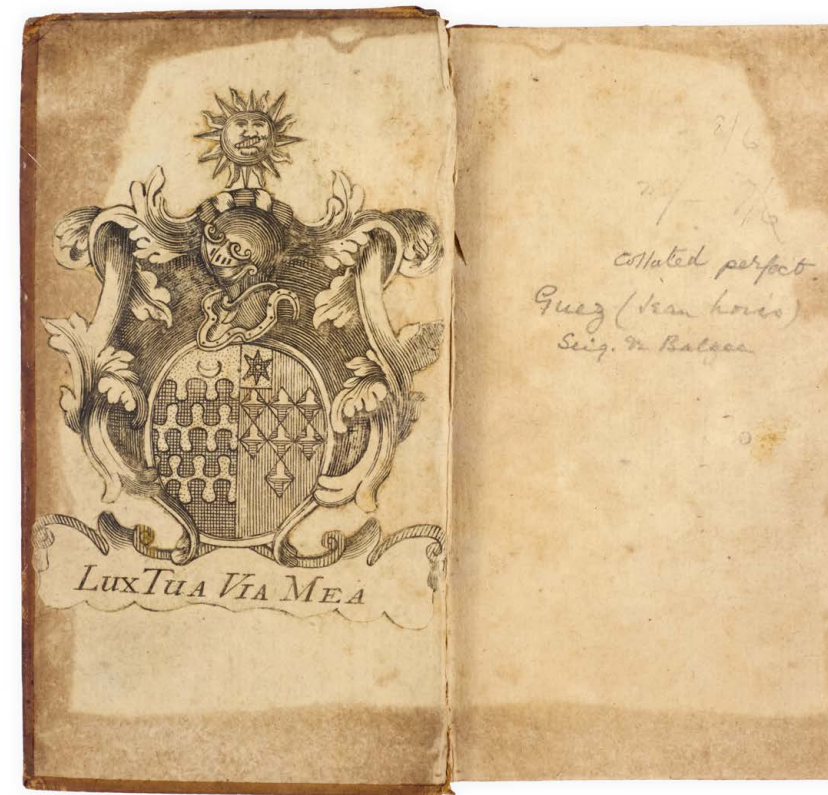 Lux Tua Via Mea
2/6
7/6
collated perfect
Guez (Jean Louis)
Seig. de Balzac